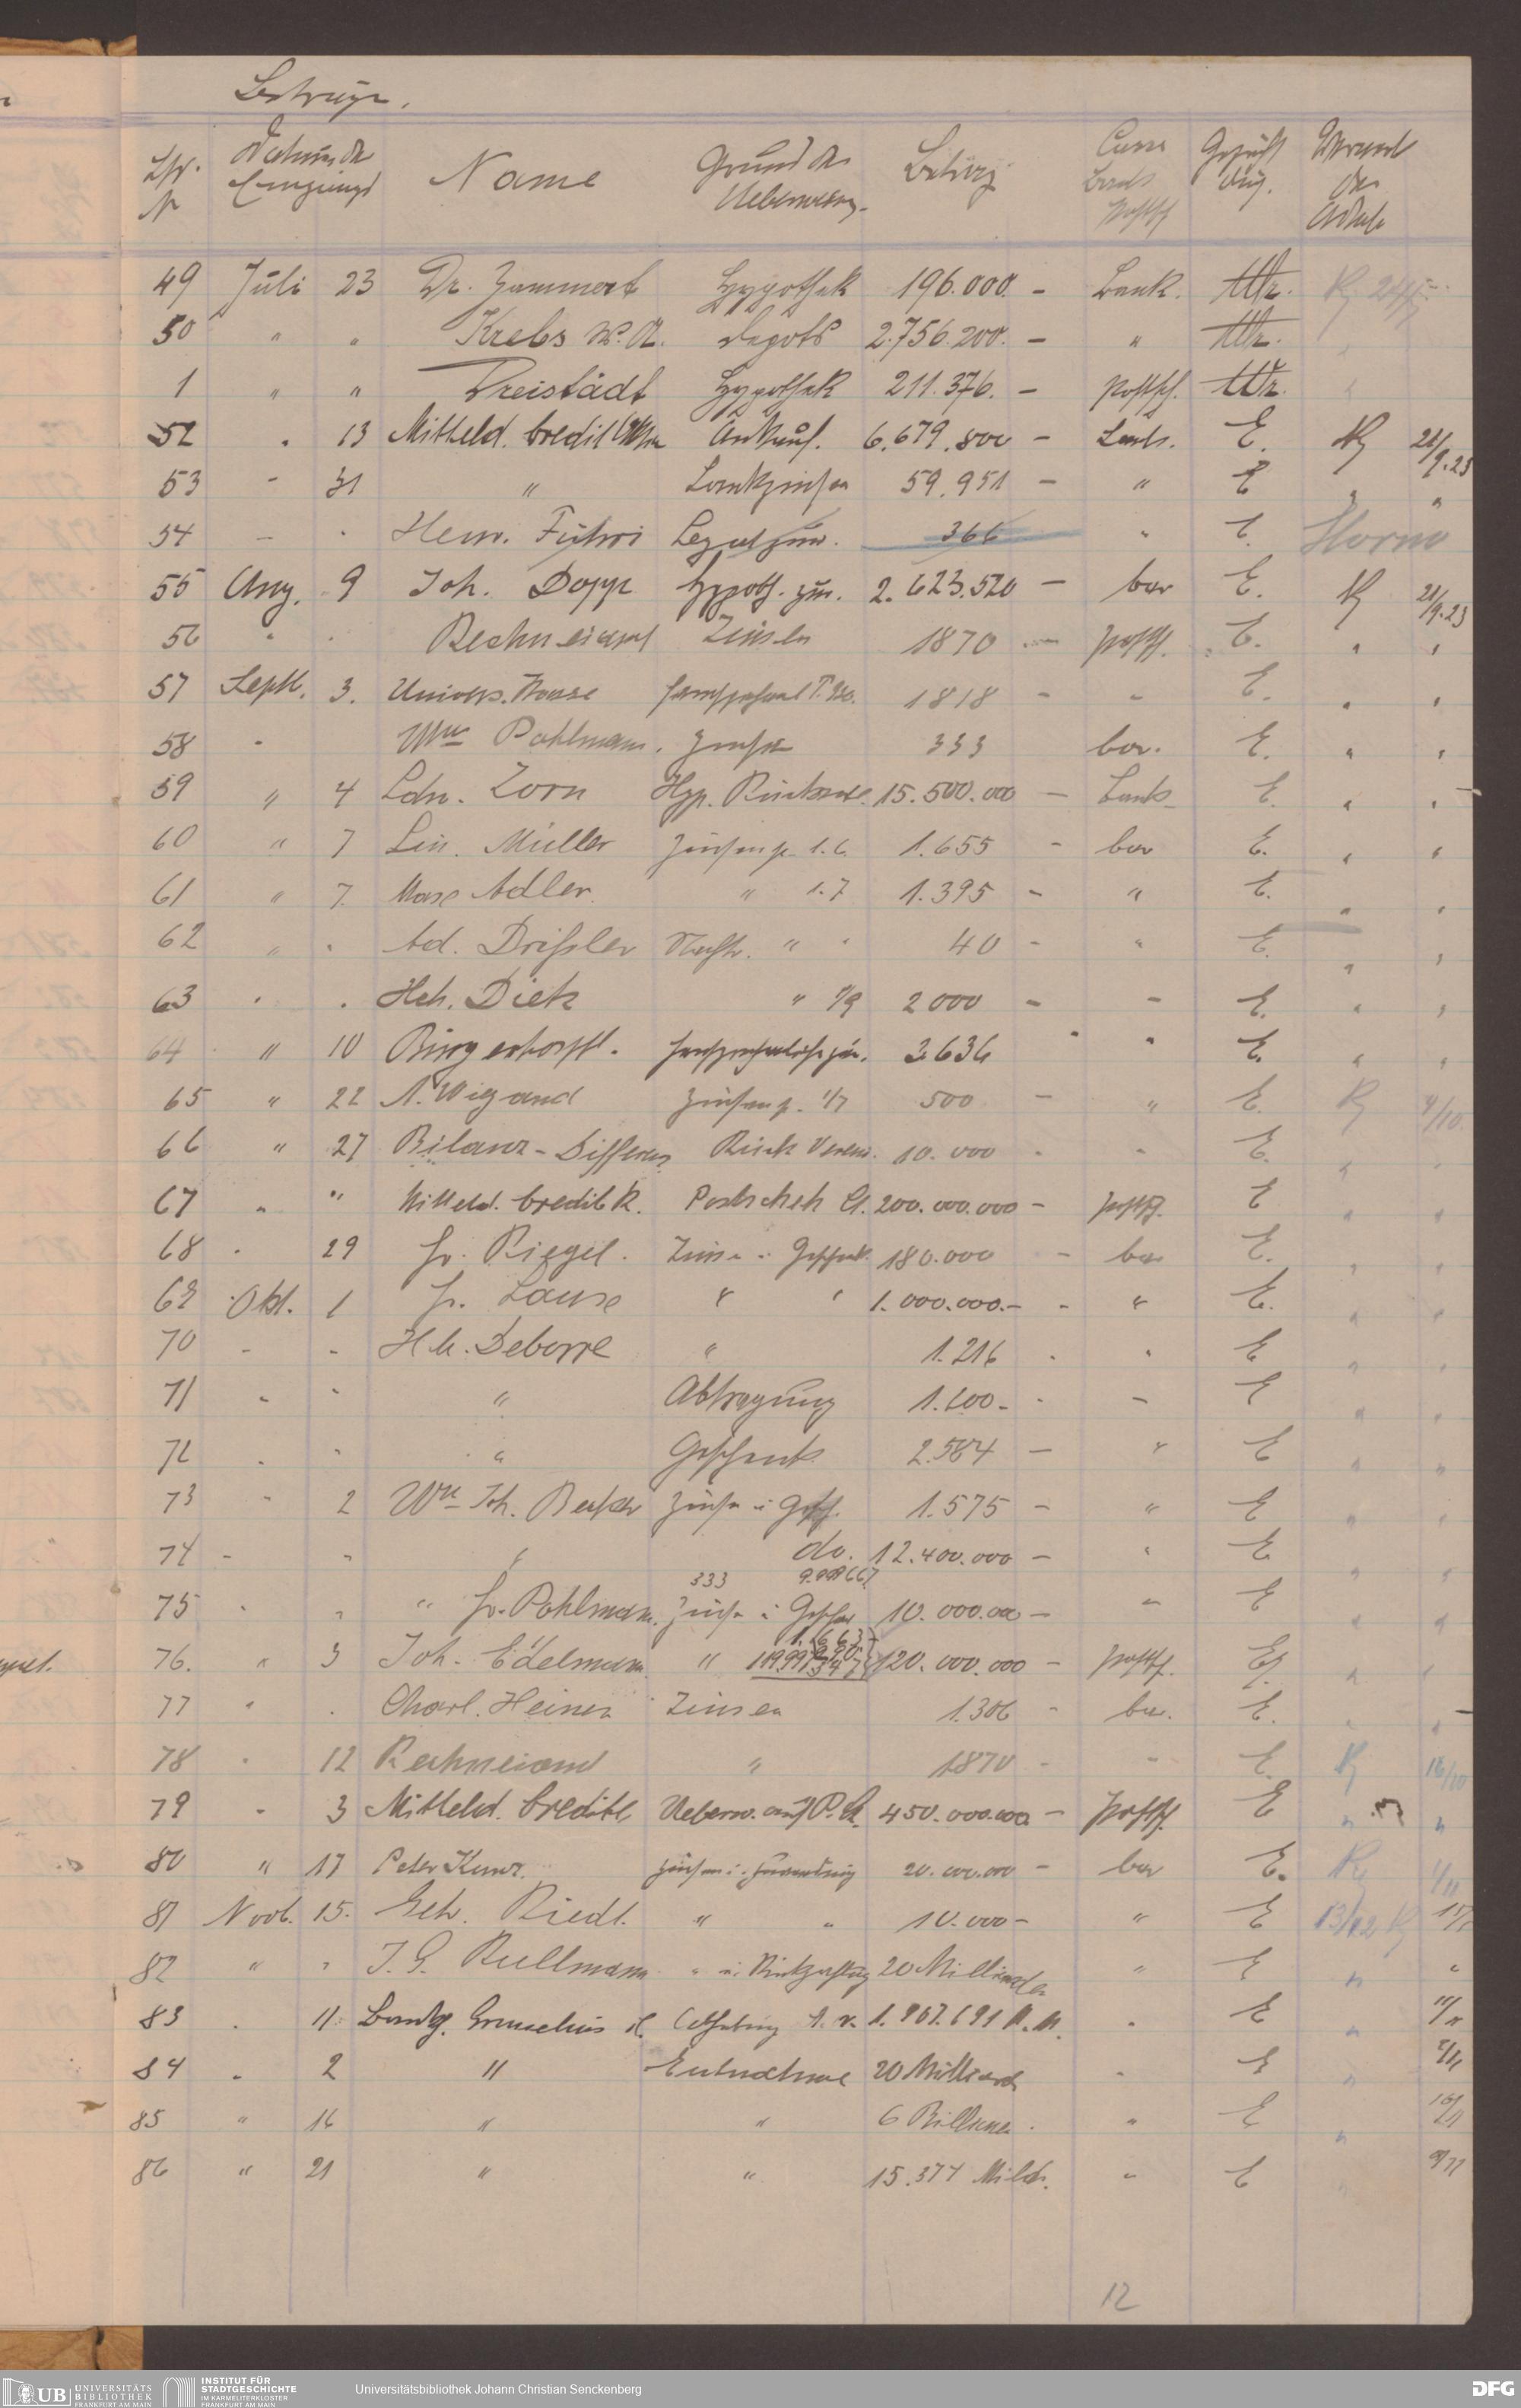 Beträge.
Lfd. N Datum des Eingangs Name Grund der Ueberweisg. Betrag Casse Bank Postsch Gebucht
49 Juli 23 Dr. Hypothek 196.000. - Bank.
50 " " Krebs W. A. depots 2.756.200. - "
1 " " Dreistädt Hypothek 211.376. - Postsch.
52 " 13 Mitteld. Credit Ankauf. 6.679.800 - Bank. E. 21/9.23
53 - 31 " Bankzinsen 59.951 - " E " "
54 - " Heinr. Führi 366 " E. Horne
55 Aug. 9 Joh. Dopp Hypoth. zin. 2.623.520 - bar E. 21/9.23
56 " " Rechneiamt Zinsen 1870 - Postsch. E. " "
57 Septb. 3. Univers. Kasse 1818 - " E. " "
58 " Wwe Pohlmann. Zinsen 333 bar. E. " "
59 " 4 Ldw. Zorn Hyp. Rückzahl. 15.500.000 - Bank E. " "
60 " 7 Lin. Müller Zinsen p. 1.6. 1.655 - bar E. " "
61 " 7. Max Adler. " 1.7 1.395 - " E. " "
62 " " Ad. Drißler Nachtr. " " 40 - " E. " "
63 " " Hch. Dietz " 1/9 2000 - - E. " "
64 " 10 Bürgerhospt. 3636 " " E. " "
65 " 22 A. Wigand Zinsen p. 1/7 500 - " E. 4/10.
66 " 27 Bilanz-Differenz Rück Verein. 10.000 " " E. " "
67 " " Mitteld. Creditb. Postscheck Ct. 200.000.000 - Postsch. E " "
68 " 29 Fr. Riegel. Zinsen u. Geschenk. 180.000 - bar E. " "
69 Okt. 1 Fr. Lause " " 1.000.000.- - " E. " "
70 - - Hch. Deborre " 1.216 " " E " "
71 " " " Abtragung 1.600. " - E " "
72 " " " Geschenk 2.564 - " E " "
73 " 2 Wwe Joh. Becker Zinsen u Gesch. 1.575 - " E " "
74 - " " do. 12.400.000 - " E " "
333 9.999667
75 " " " Fr. Pohlmann. Zinsen u Geschen 10.000.000 - " E " "
1.663
76. " 3 Joh. Edelmann " 120.000.000 - Postsch. E. " "
77 " " Charl. Heinen Zinsen 1.306 - bar. E. " "
78 " 12 Rechneiamt " 1870 - " E. 16/10
79 " 3 Mitteld. Creditb Ueberw. auf P. Ct. 450.000.000 - Postsch. E " "
80 " 17 Peter Kunz. Zinsen u. 20.000.000 - bar E. 1/11
81 Novb. 15. Geh. Riedl. " " 10.000 - " E 13/12
82 " " J. G. Rullmann " u. Rückzahlung 20 Milliarden " E " "
83 " 11 Bankg. Grunelius Abhebung 1.967.691 " E "
84 " 2 " Entnahme 20 Milliard " E "
85 " 16 " " 6 Billionen. " E "
86 " 21 " " 15.374 Milld. " E
12
UB UNIVERSITÄTS BIBLIOTHEK FRANKFURT AM MAIN
INSTITUT FÜR STADTGESCHICHTE IM KARMELITERKLOSTER FRANKFURT AM MAIN
Universitätsbibliothek Johann Christian Senckenberg
DFG